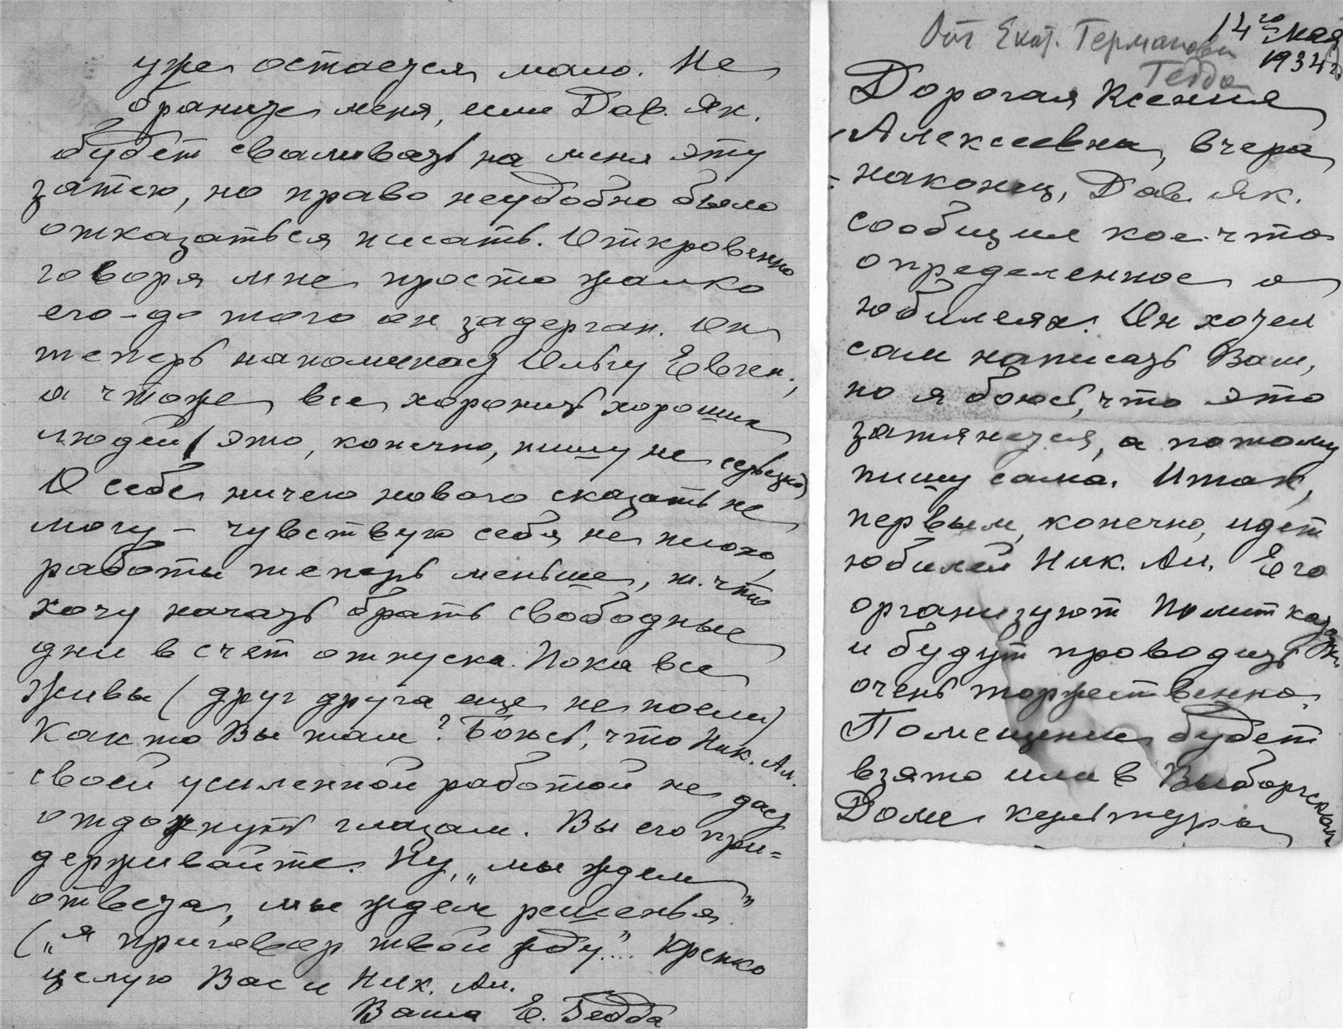 От Екат. Германовны
Гедда
14го мая
1934 г.
Дорогая Ксения
Алексеевна, вчера,
наконец, Дав. Як.
сообщил кое-что
определенное о
юбилеях. Он хочет
сам написать Вам,
но я боюсь, что это
затянется, а потому
пишу сама. Итак,
первым, конечно, идет
юбилей Ник. Ал. Его
организуют Политкаторж.
и будут проводить
очень торжественно.
Помещение будет
взято или в Выборгском
Доме культуры
уже остается мало. Не
браните меня, если Дав. Як.
будет сваливать на меня эту
затею, но право неудобно было
отказаться писать. Откровенно
говоря мне просто жалко
его – до того он задерган. Он
теперь напоминает Ольгу Евген.,
а что же все хоронить хороших
людей (это, конечно, пишу не серьезно)
О себе ничего нового сказать не
могу – чувствую себя не плохо,
работы теперь меньше, т. что
хочу начать брать свободные
дни в счет отпуска. Пока все
живы (друг друга еще не поели)
Как то Вы там? Боюсь, что Ник. Ал.
своей усиленной работой не даст
отдохнуть глазам. Вы его при=
держивайте. Ну, „мы ждем
ответа, мы ждем решенья”
(„я приговор твой жду”... Крепко
целую Вас и Ник. Ал.
Ваша Е. Гедда